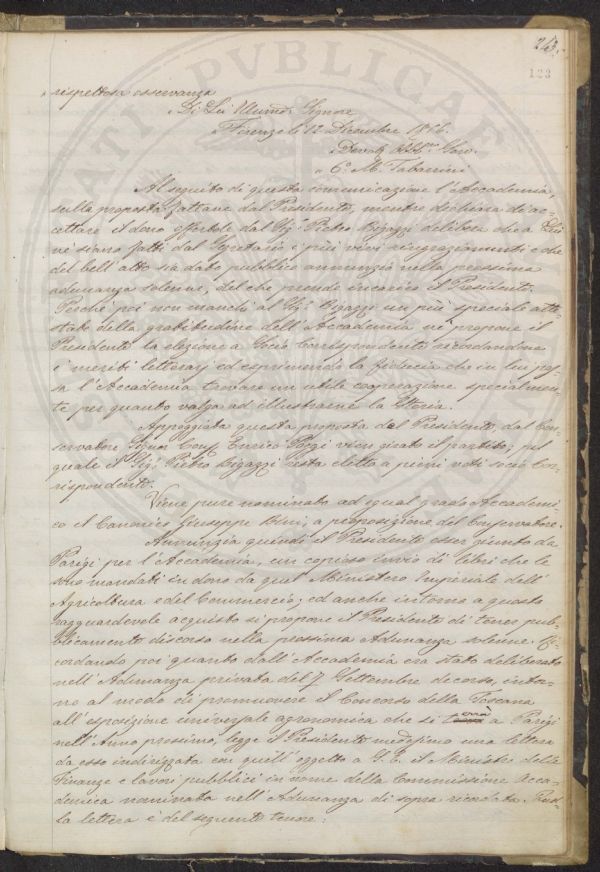 243.
123
rispettosa osservanza
Di Lei Illumo: Signore
Firenze li 12 Dicembre 1856.
Devotmo
Co: M. Tabarrini
Al seguito di questa comunicazione l'Accademia,
sulla proposta fattane dal Presidente, mentre dichiara di ac-
cettare il dono offertole dal Sig: Pietro Bigazzi delibera che a Lui
ne siano fatti dal Segretario i più vivi ringraziamenti e che
del bell'atto sia dato pubblico annunzio nella prossima
adunanza solenne, del che prende incarico il Presidente.
Perché poi non manchi al Sig: Bigazzi un più speciale atte-
stato della gratitudine dell'Accademia ne propone il
Presidente la elezione a Socio Corrispondente ricordandone
i meriti letterarj ed esprimendo la fiducia che in lui pos-
sa l'Accademia trovare un utile cooperazione specialmen-
te per quanto valga ad illustrarne la Storia.
Appoggiata questa proposta del Presidente, dal Con-
servatore Enrico Poggi vien girato il partito; pel
quale il Sig: Pietro Bigazzi resta eletto a pieni voti socio Cor-
rispondente.
Viene pure nominato ad egual grado Accademi-
co il Canonico Giuseppe Bini, a proposizione del Conservatore.
Annunzia quindi il Presidente esser giunto da
Parigi per l'Accademia, un copioso invio di libri che le
sono mandati in dono da quel Ministero Imperiale dell'
Agricoltura e del Commercio; ed anche intorno a questo
ragguardevole acquisto si propone il Presidente di tener pub-
blicamente discorso nella prossima Adunanza solenne. Ri-
cordando poi quanto dall'Accademia era stato deliberato
nell'Adunanza privata del 7 Settembre decorso, intor-
no al modo di promuovere il Concorso della Toscana
all'esposizione universale agronomica che si terrà a Parigi
nell'Anno prossimo, legge il Presidente medesimo una lettera
da esso indirizzata con quell'oggetto a S. E. il Ministro delle
Finanze e lavori pubblici in nome della Commissione Acca-
demica nominata nell'Adunanza di sopra ricordata. Que-
sta lettera è del seguente tenore: